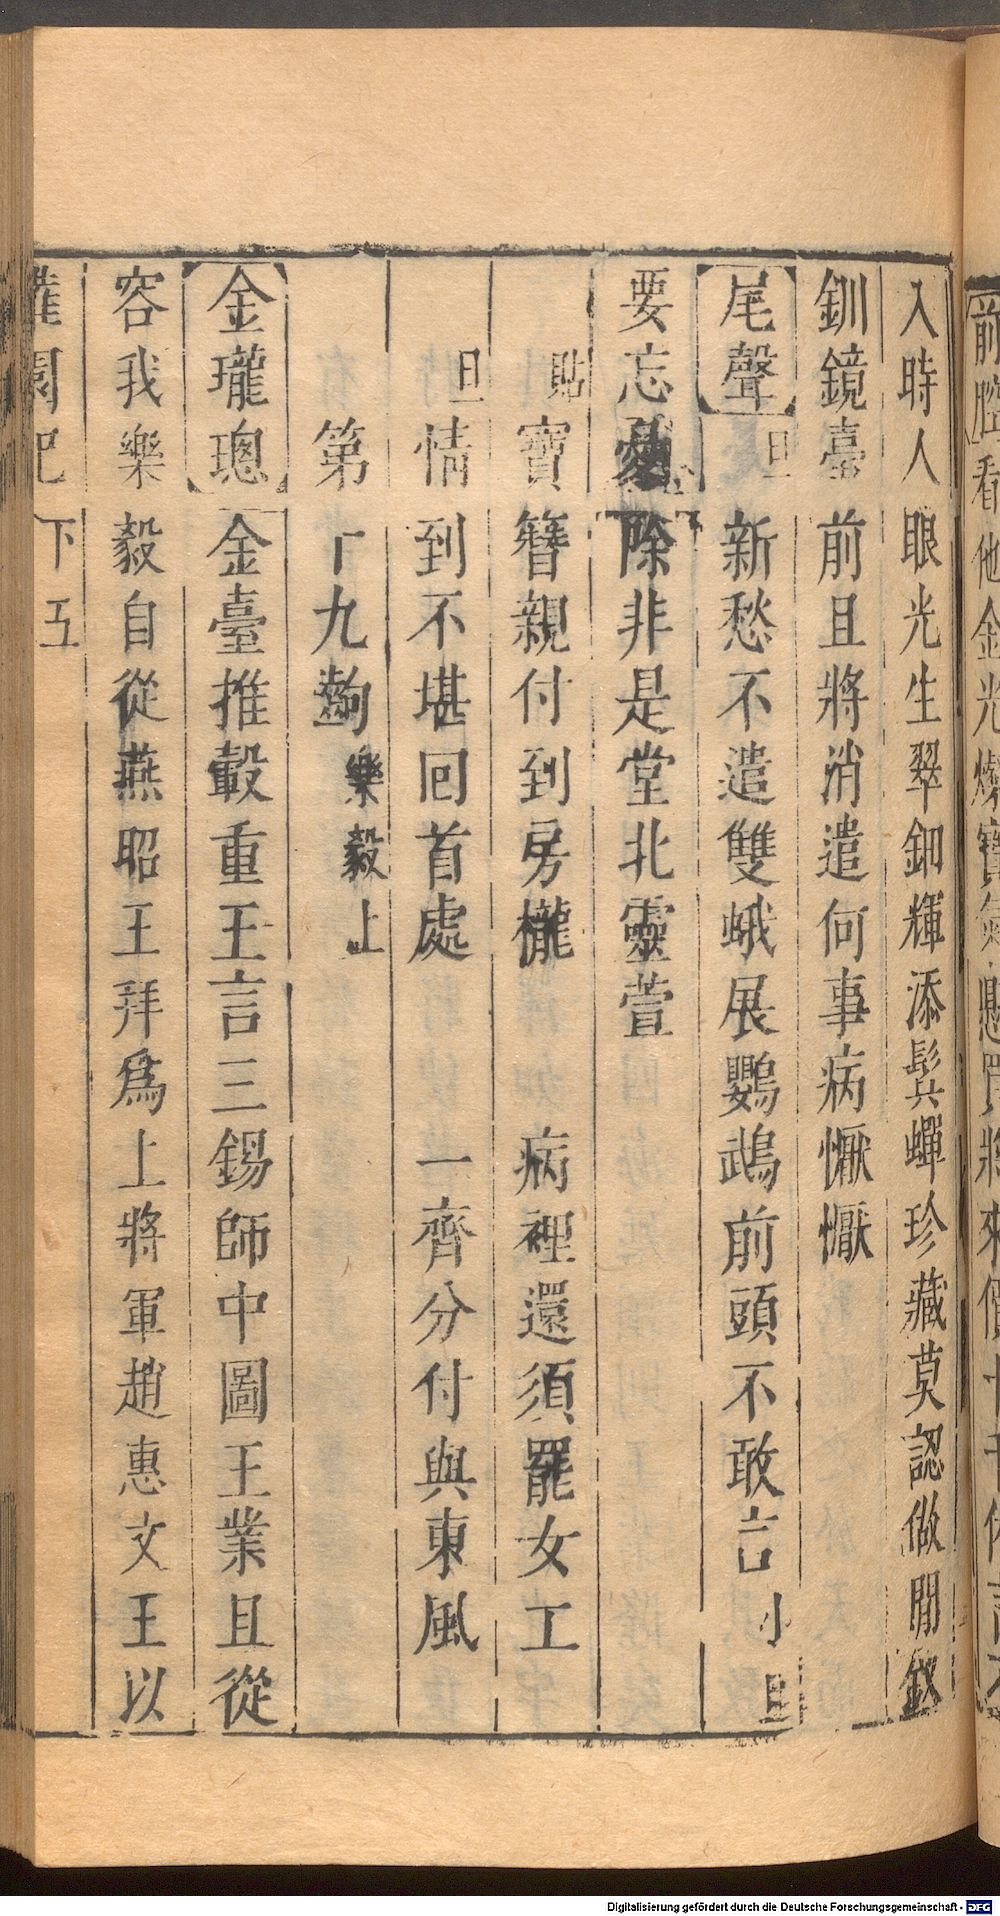 前腔看他金光燦寶氣懸買將來價十千休言不
入時人眼光生翠鈿輝添鬂蟬珍藏莫認做閒釵
釧鏡臺前且將消遣何事病懨懨
尾聲旦新愁不遣雙蛾展鸚鵡前頭不敢言小旦
要忘憂除非是堂北靈萱
貼寶簪親付到房櫳 病裡還須罷女工
旦情到不堪回首處 一齊分付與東風
第十九齣樂毅上
金瓏璁金臺推轂重王言三錫師中圖王業且從
容我樂毅自從燕昭王拜爲上將軍趙惠文王以
灌園記 下 五
Digitalisierung gefördert durch die Deutsche Forschungsgemeinschaft - DFG